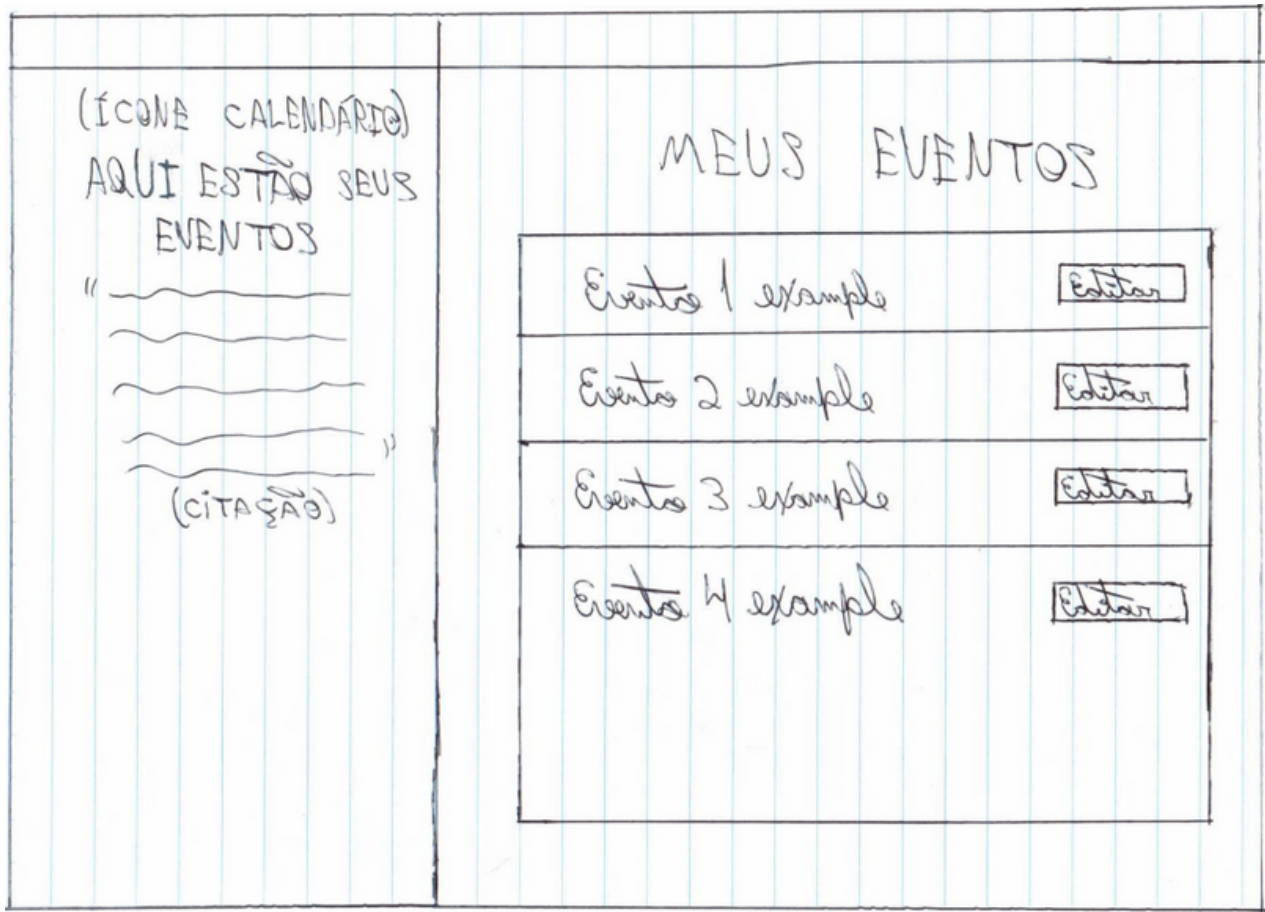 (ÍCONE CALENDÁRIO)
AQUI ESTÃO SEUS
EVENTOS
"
"
(CITAÇÃO)
MEUS EVENTOS
Evento 1 example Editar
Evento 2 example Editar
Evento 3 example Editar
Evento 4 example Editar